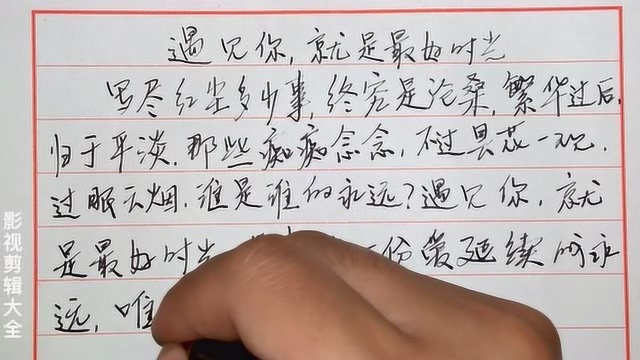 遇见你,就是最好时光
写尽红尘多少事,终究是沧桑,繁华过后,
归于平淡.那些痴痴念念,不过昙花一现,
过眼云烟.谁是谁的永远?遇见你,就
是最好时光 份爱延续成永
远,唯
影视剪辑大全